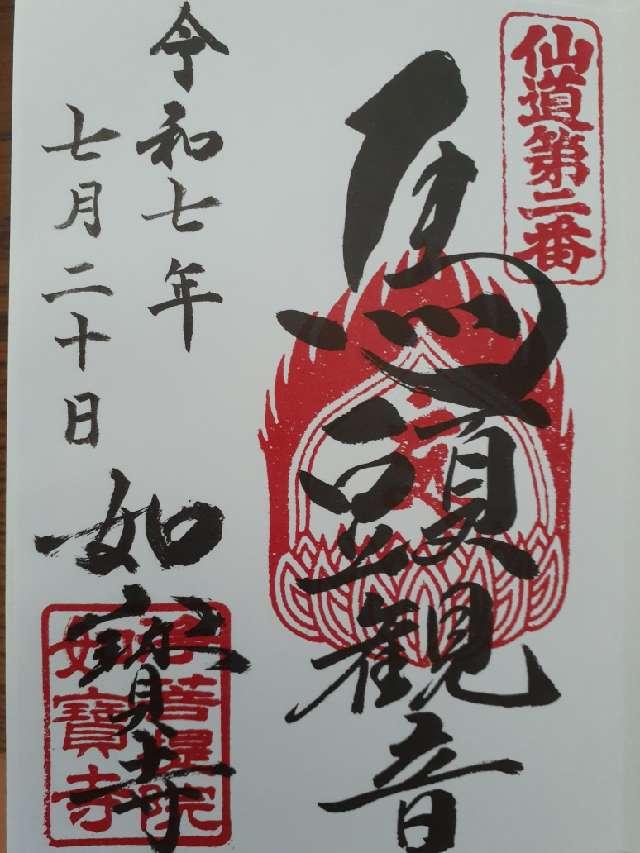 仙道第二番
馬頭観音
令和七年
七月二十日
如寳寺
如寳寺